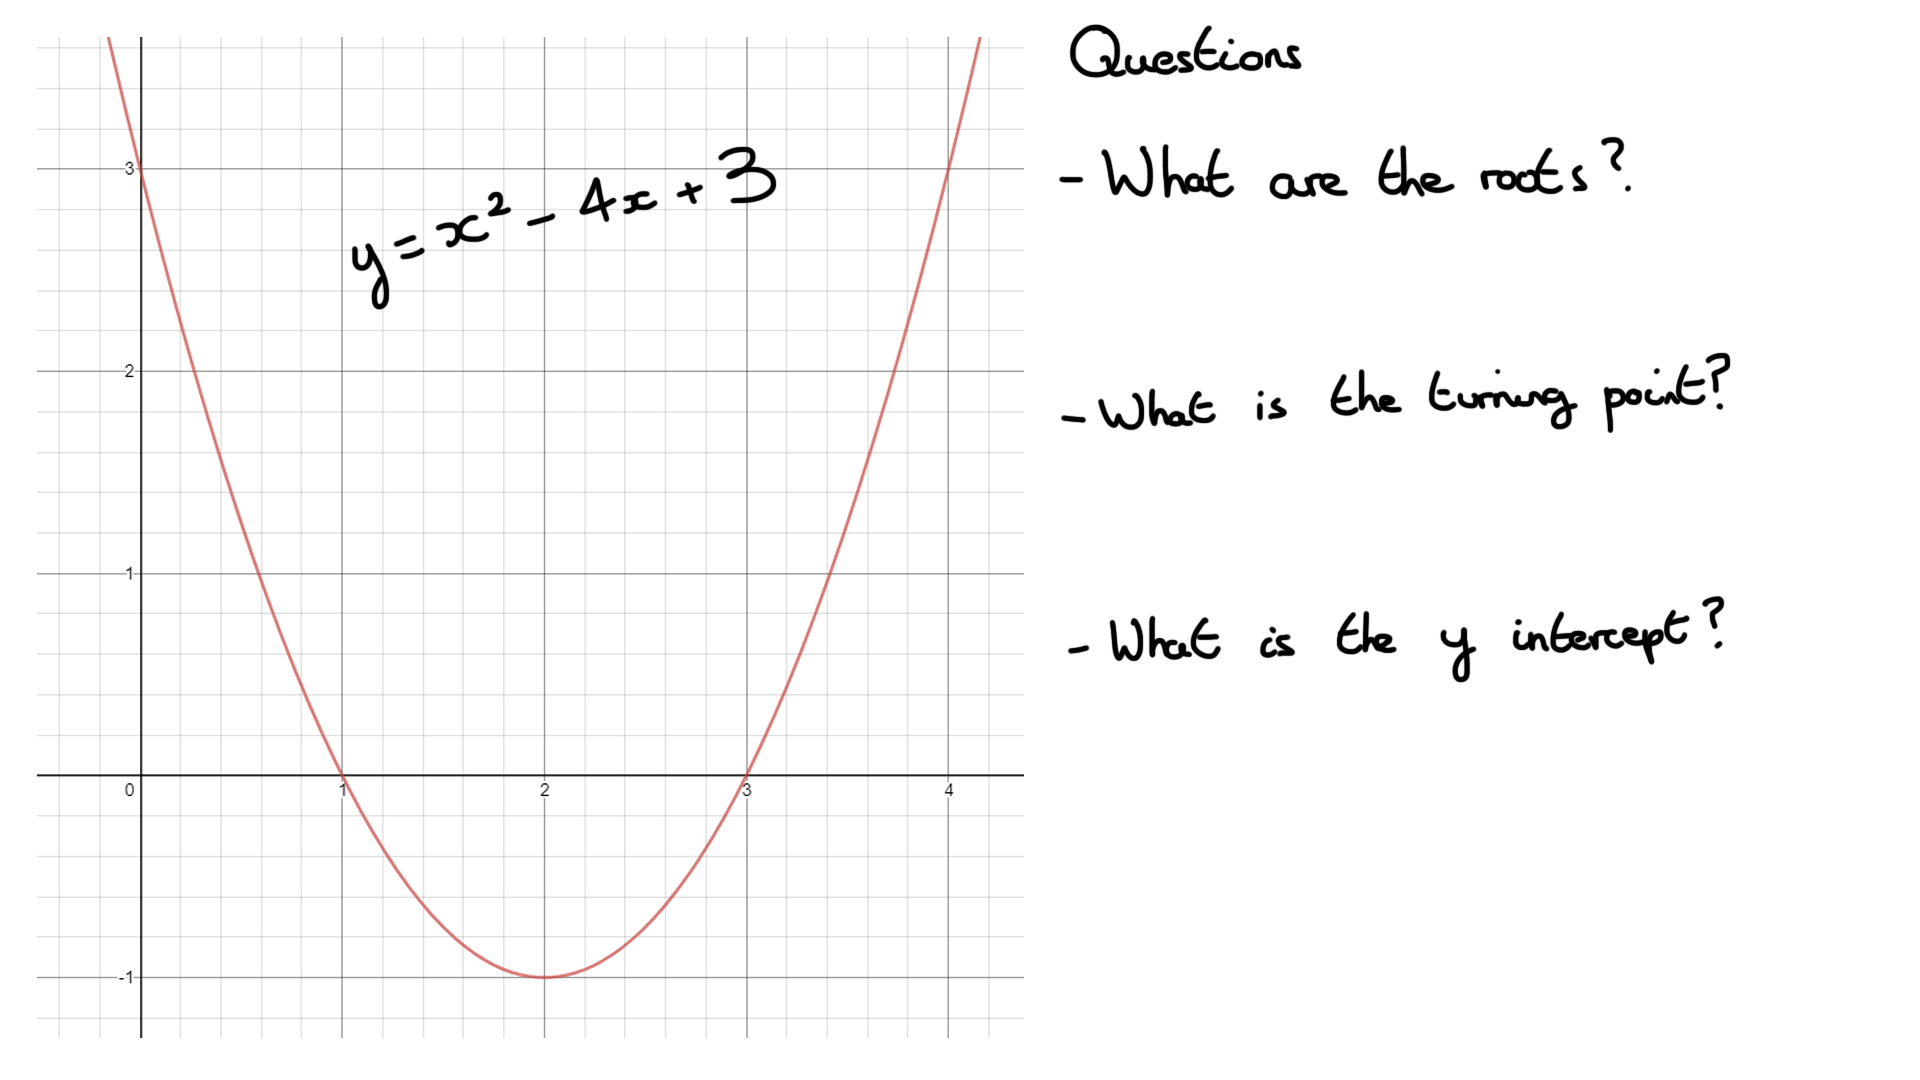 3
y = x² - 4x + 3
2
1
0 1 2 3 4
-1
Questions
- What are the roots?
- What is the turning point?
- What is the y intercept?